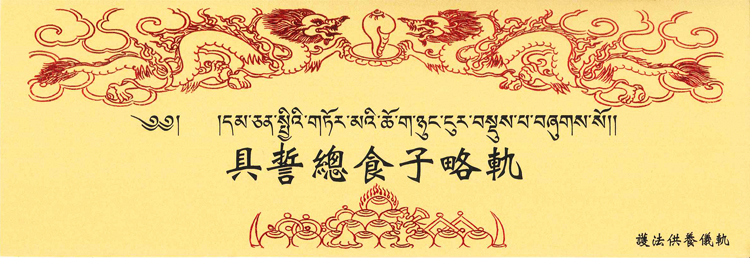 ༄༅། །དམ་ཅན་སྤྱིའི་གཏོར་མའི་ཆོ་ག་ཉུང་ངུར་བསྡུས་པ་བཞུགས་སོ།།
具誓總食子略軌
護法供養儀軌